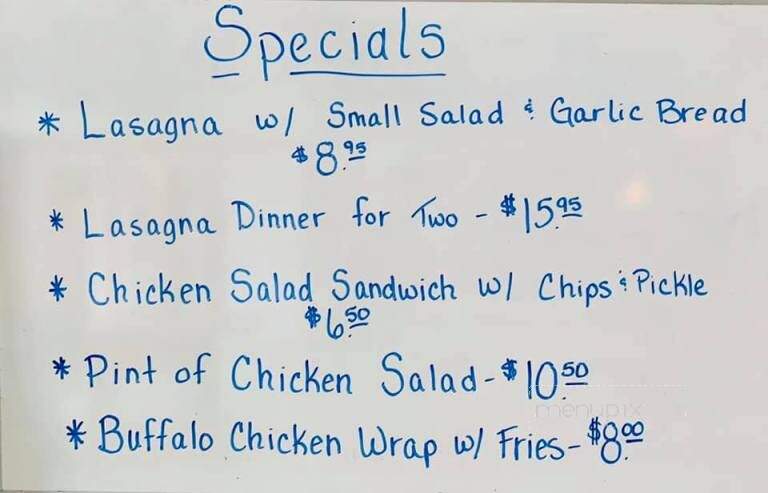 Specials
* Lasagna w/ Small Salad & Garlic Bread
$8.95
* Lasagna Dinner for Two - $15.95
* Chicken Salad Sandwich w/ Chips & Pickle
$6.50
* Pint of Chicken Salad - $10.50
menupix
* Buffalo Chicken Wrap w/ Fries - $8.00